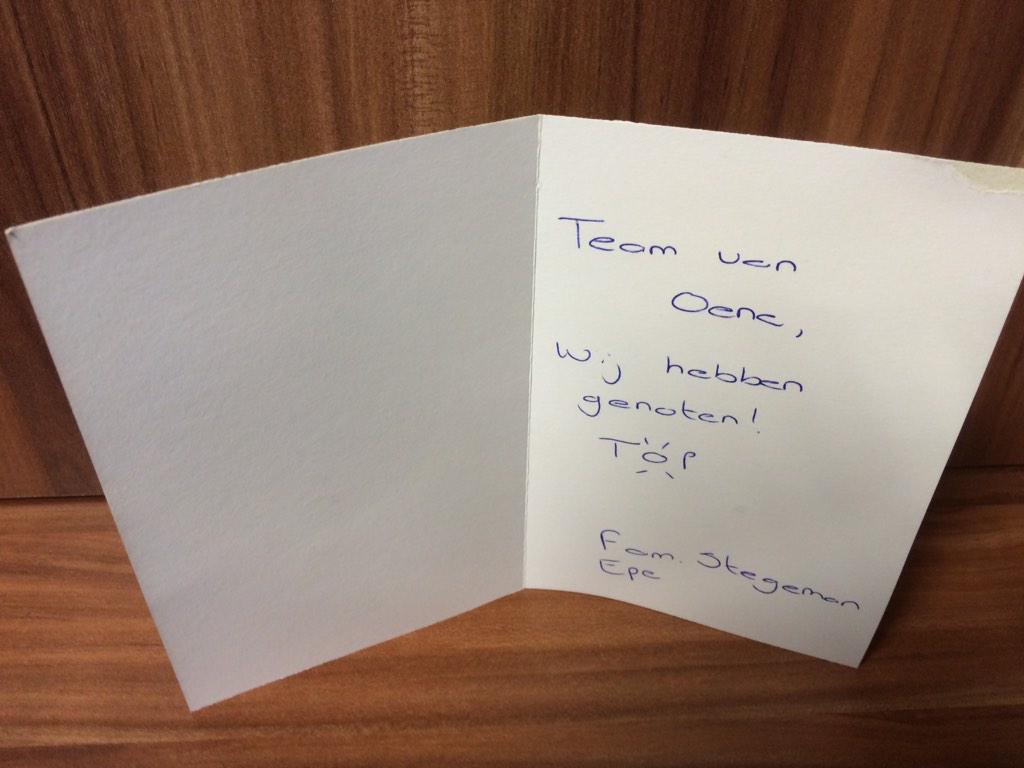 Team van
Oene,
Wij hebben
genoten!
TOP
Fam. Stegeman
Epe